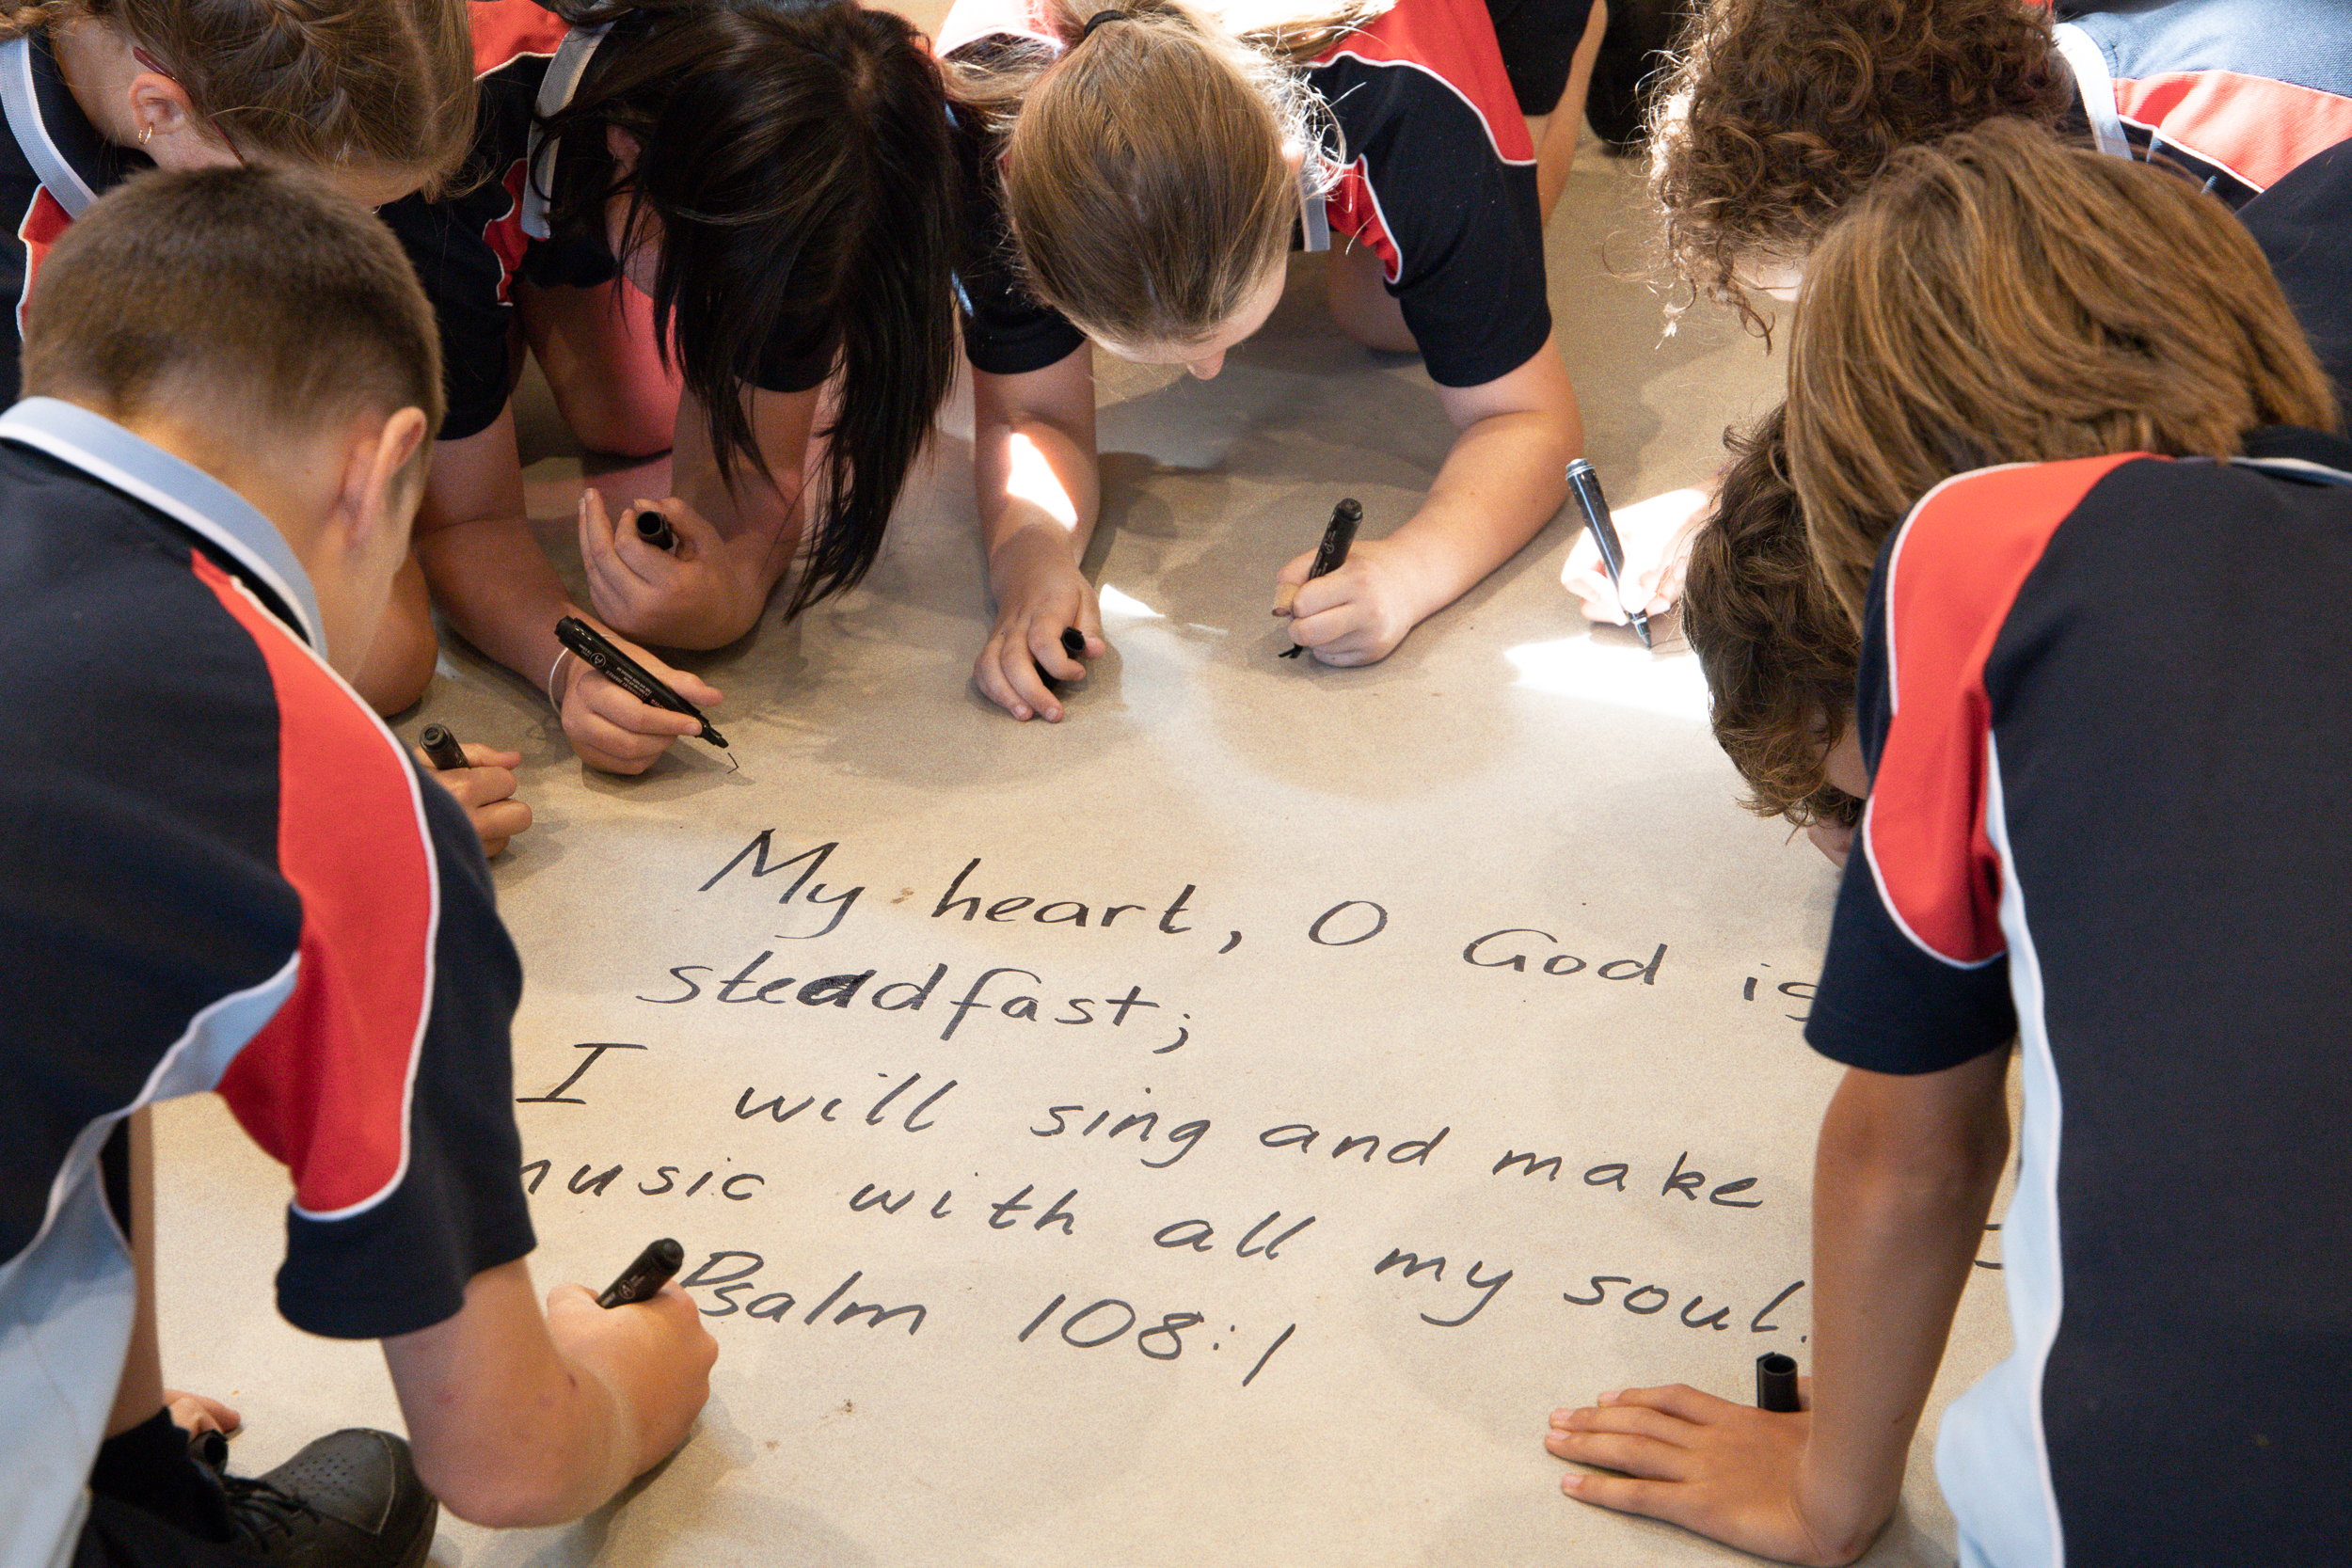 My heart, O God is
steadfast;
I will sing and make
music with all my soul.
Psalm 108:1